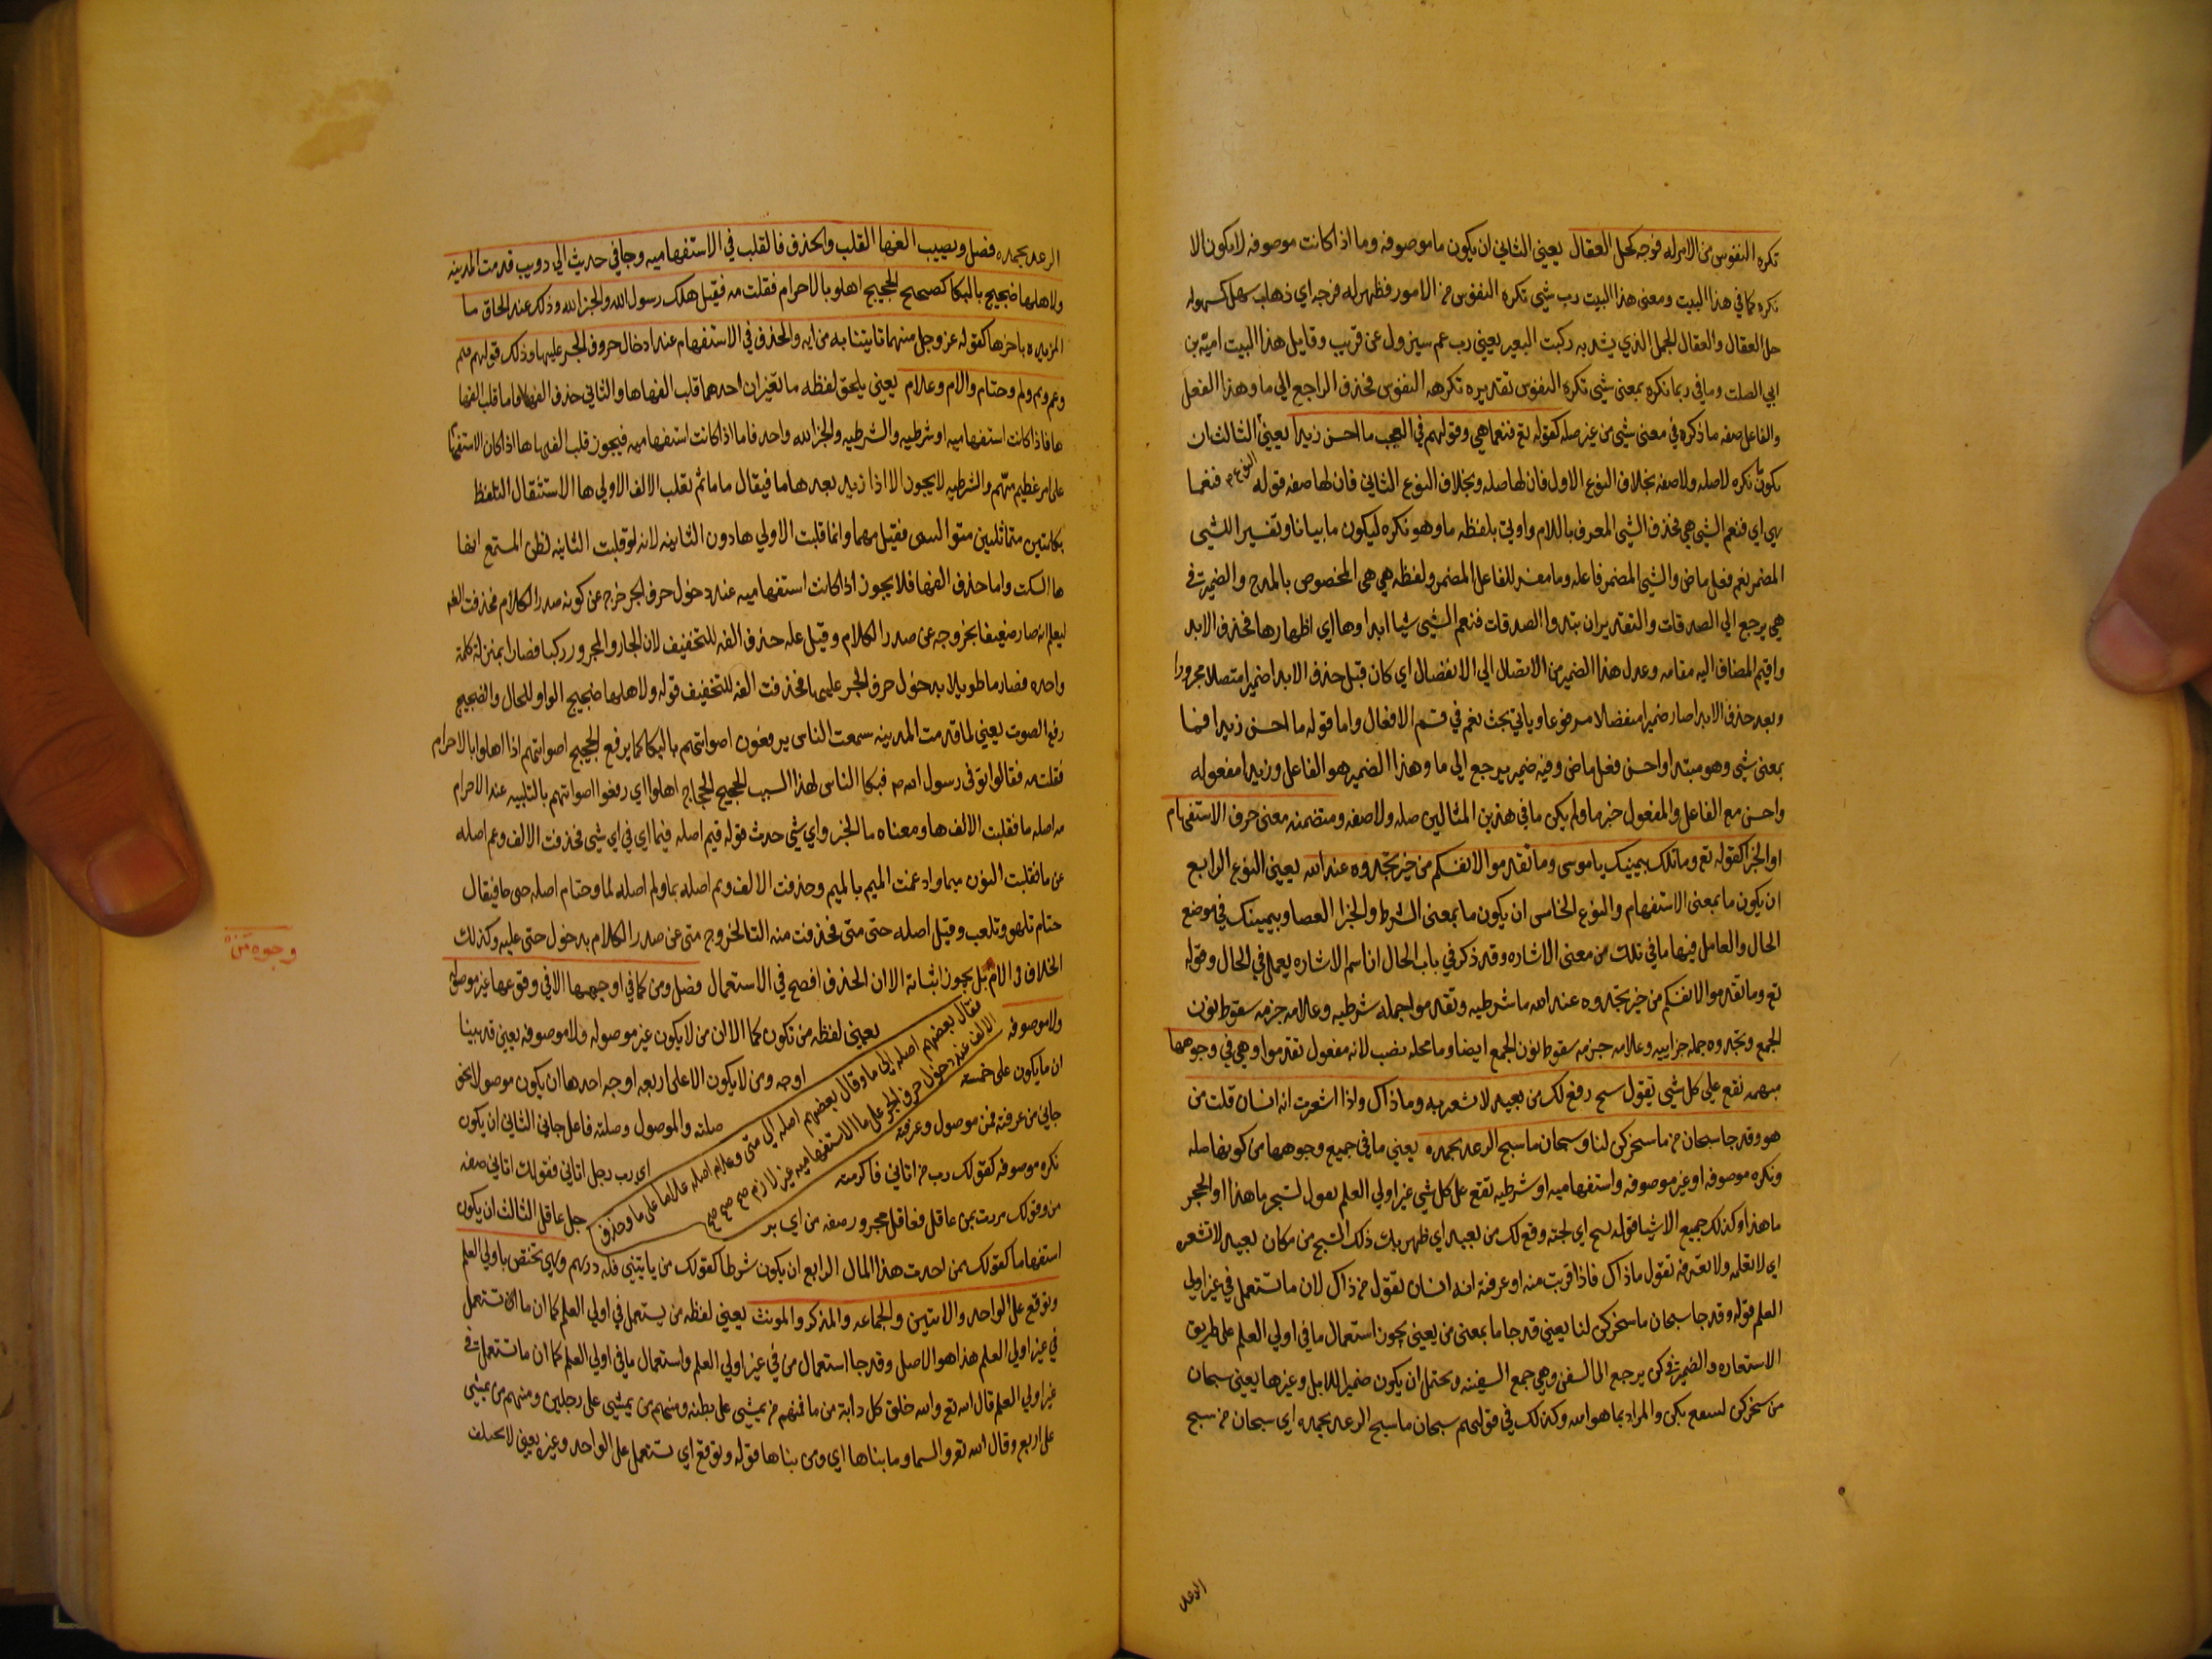 تكره النفوس من الامر له فرجه كحل العقال يعني الثاني ان يكون ما موصوفه وما اذا كانت موصوفه لا يكون الا
نكره كما في هذا البيت ومعنى هذا البيت رب شي تكره النفوس من الامور فظهر له فرجه اي ذهاب سهل كسهوله
حل العقال والعقال الحبل الذي يشد به ركبت البعير يعني رب غم سيزول عن قريب وقايل هذا البيت امية بن
ابي الصلت وما في ربما تكره بمعنى شي تكره النفوس تقديره تكرهه النفوس فحذف الراجع الي ما وهذا الفعل
والفاعل صفه ما نكره في معنى شي من غير صله كقوله تع فنعما هي وقولهم في التعجب ما احسن زيدا يعني الثالث ان
تكون نكره لا صله ولا صفه بخلاف النوع الاول فان لها صله وبخلاف النوع الثاني فان لها صفه قوله فنعما
هي اي فنعم الشي هي فحذف الشي المعرف باللام واوتي بلفظه ما وهو نكره ليكون ما بيانا وتفسير الشي
المضمر نعم فعل ماض والشي المضمر فاعله وما مفسر للفاعل المضمر ولفظه هي هي المخصوص بالمدح والضمير في
هي يرجع الي الصدقات والتقدير ان تبدوا الصدقات فنعم الشي شيا ابداوها اي اظهارها فحذف الابدا
واقيم المضاف اليه مقامه وعدل هذا الضمير من الاتصال الي الانفصال اي كان قبل حذف الابدا ضميرا متصلا مجرورا
وبعد حذف الابدا صار ضميرا منفصلا مرفوعا وياتي بحث نعم في قسم الافعال واما قوله ما احسن زيدا فما
بمعنى شي وهو مبتدا واحسن فعل ماض وفيه ضمير يرجع الي ما وهذا الضمير هو الفاعل وزيدا مفعوله
واحسن مع الفاعل والمفعول خبر ما ولم يكن ما في هذين المثالين صله ولا صفه ومتضمنه معنى حرف الاستفهام
او الجزا كقوله تع وما تلك بيمينك ياموسى وما تقدموا لانفسكم من خير تجدوه عند الله يعني النوع الرابع
ان يكون ما بمعنى الاستفهام والنوع الخامس ان يكون ما بمعنى الشرط والجزا العصا وبيمينك في موضع
الحال والعامل فيها ما في تلك من معنى الاشاره وقد ذكر في باب الحال ان اسم الاشاره يعمل في الحال وقوله
تع وما تقدموا لانفسكم من خير تجدوه عند الله ما شرطيه وتقدموا جمله شرطيه وعلامه جزمه سقوط نون
الجمع وتجدوه جمله جزاييه وعلامه جزمه سقوط نون الجمع ايضا وما محله نصب لانه مفعول تقدموا وهي في وجوهها
مبهمه تقع علي كل شي تقول شبح رفع لك من بعيد لا تشعر به وما ذاك واذا اشعرت انه انسان قلت من
هو وقد جا سبحان من ما سخركن لنا وسبحان ما سبح الرعد بحمده يعني ما في جميع وجوهها من كونها صله
ونكره موصوفه او غير موصوفه واستفهاميه او شرطيه تقع على كل شي غير اولي العلم تقول لشجر ما هذا او لحجر
ما هذا وكذلك جميع الاشيا قوله شبح اي لجثه وقع لك من بعيد اي ظهر بك ذلك الشبح من مكان بعيد لا تشعره
اي لا تعلمه ولا تعرفه تقول ما ذاك فاذا قربت منه او عرفته انه انسان تقول من ذاك لان ما تستعمل في غير اولي
العلم قوله وقد جا سبحان ما سخركن لنا يعني قد جا ما بمعنى من يعني يجوز استعمال ما في اولي العلم على طريق
الاستعاره والضمير في كن يرجع الى السفن وهي جمع السفينه ويحتمل ان يكون ضميرا للابل وغيرها يعني سبحان
من سخركن والمراد بما هو الله وكذلك في قولهم سبحان ما سبح الرعد بحمده اي سبحان من سبح
الرعد
الرعد بحمده فصل ويصيب الفها القلب والحذف فالقلب في الاستفهاميه وجا في حديث ابي ذويب قدمت المدينه
ولاهلها ضجيج بالبكا كضجيج الحجيج اهلوا بالاحرام فقلت مه فقيل هلك رسول الله والجزاييه وذلك عند الحاق ما
المزيده باخرها كقوله عز وجل مهما تاتينا به من ايه والحذف في الاستفهام عند ادخال حروف الجر عليها وذلك قولهم فيم
وعم وبم ولم وحتام والام وعلام يعني يلحق لفظه ما تغيران احدهما قلب الفها ها والثاني حذف الفها فاما قلب الفها
ها فاذا كانت استفهاميه او شرطيه والشرطيه والجزاييه واحد فاما اذا كانت استفهاميه فيجوز قلب الفها ها اذا كان الاستفهام
على امر عظيم مبهم والشرطيه لا يجوز الا اذا زيد بعدها ما فيقال ما ما ثم تقلب الالف الاولي ها الاستثقال التلفظ
بكلمتين متماثلين فقيل مهما وانما قلبت الاولي ها دون الثانيه لانه لو قلبت الثانيه لظن المستمع انها
ها السكت واما حذف الفها فلا يجوز اذا كانت استفهاميه عند دخول حرف الجر خرج عن كونه صدر الكلام فحذفت الفه
ليعلم انه صار ضعيفا بخروجه عن صدر الكلام وقيل عله حذف الفه للتخفيف لان الجار والمجرور ركبا فصارا بمنزله كلمة
واحده فصار ما طويلا بدخول حرف الجر عليها فحذفت الفه للتخفيف قوله ولاهلها ضجيج الواو للحال والضجيج
رفع الصوت يعني لما قدمت المدينه سمعت الناس يرفعون اصواتهم بالبكا كما يرفع الحجيج اصواتهم اذا اهلوا بالاحرام
فقلت مه فقالوا توفي رسول الله م فبكا الناس لهذا السبب الحجيج الحجاج اهلوا اي رفعوا اصواتهم بالتلبيه عند الاحرام
مه اصله ما فقلبت الالف ها ومعناه ما الخبر واي شي حدث قوله فيم اصله فيما اي في اي شي فحذفت الالف وعم اصله
عن ما فقلبت النون ميما وادغمت الميم بالميم وحذفت الالف وبم اصله بما ولم اصله لما وحتام اصله حتى ما فيقال
حتام تلهو وتلعب وقيل اصله حتى متى فحذفت منه التا لخروج متى عن صدر الكلام بدخول حتى عليه وكذلك
الخلاف في الام بل يجوز اثباته الا ان الحذف افصح في الاستعمال فصل ومن كما في اوجهها الا في وقوعها غير موصوله
ولا موصوفه يعني لفظه من تكون كما الا ان من لا يكون غير موصوله ولا موصوفه يعني قد بينا
ان ما يكون على خمسه اوجه ومن لا يكون الا على اربعه اوجه احدها ان يكون موصولا نحو
جاني من عرفته فمن موصول وعرفته صلته والموصول وصلته فاعل جاني الثاني ان يكون
نكره موصوفه كقولك رب من اتاني فاكرمته اي رب رجل اتاني فقولك اتاني صفه
من وقولك مررت بمن عاقل فعاقل مجرور صفه من اي برجل عاقل الثالث ان يكون
فقال بعضهم اصله الى ما وقال بعضهم اصله الى متى وعلام اصله على ما وحذف
الالف عند دخول حرف الجر على ما الاستفهاميه غير لازم صح صح صح
استفهاما كقولك من احدث هذا المال الرابع ان يكون شرطا كقولك من ياتيني فله درهم وهي تختص باولي العلم
وتوقع على الواحد والاثنين والجماعه والمذكر والمونث يعني لفظه من يستعمل في اولي العلم كما ان ما تستعمل
في غير اولي العلم هذا هو الاصل وقد جا استعمال من في غير اولي العلم واستعمال ما في اولي العلم كما ان ما تستعمل في
غير اولي العلم قال الله تع والله خلق كل دابة من ما فمنهم من يمشي على بطنه ومنهم من يمشي على رجلين ومنهم من يمشي
على اربع وقال الله تع والسما وما بناها اي ومن بناها قوله وتوقع اي تستعمل على الواحد وغيره يعني لا يختلف
وجوه من